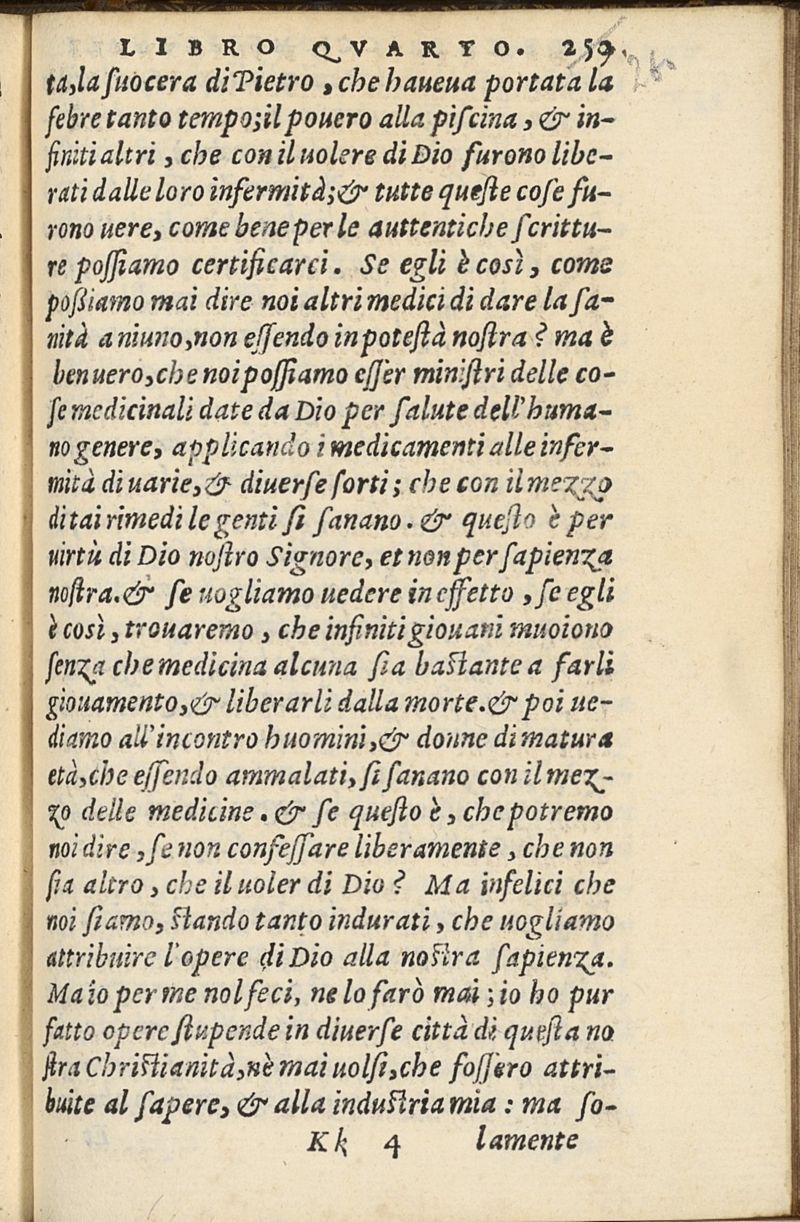 LIBRO QVARTO. 259.
260
ta,la ſuocera di Pietro, che haueua portata la
febre tanto tempo;il pouero alla piſcina, & in-
finiti altri, che con il uolere di Dio furono libe-
rati dalle loro infermità;& tutte queſte coſe fu-
rono uere, come bene per le auttentiche ſcrittu-
re poſſiamo certificarci. Se egli è così, come
poßiamo mai dire noi altri medici di dare la ſa-
nità a niuno,non eſſendo in poteſtà noſtra? ma è
ben uero,che noi poſſiamo eſſer miniſtri delle co-
ſe medicinali date da Dio per ſalute dell'huma-
no genere, applicando i medicamenti alle infer-
mità di uarie,& diuerſe ſorti; che con il mezzo
di tai rimedi le genti ſi ſanano. & queſto è per
uirtù di Dio noſtro Signore, et non per ſapienza
noſtra.& ſe uogliamo uedere in effetto, ſe egli
è così, trouaremo, che infiniti giouani muoiono
ſenza che medicina alcuna ſia baſtante a farli
giouamento,& liberarli dalla morte.& poi ue-
diamo all'incontro huomini,& donne di matura
età,che eſſendo ammalati, ſi ſanano con il mez-
zo delle medicine. & ſe queſto è, che potremo
noi dire, ſe non confeſſare liberamente, che non
ſia altro, che il uoler di Dio? Ma infelici che
noi ſiamo, ſtando tanto indurati, che uogliamo
attribuire l'opere di Dio alla noſtra ſapienza.
Ma io per me nol feci, ne lo farò mai; io ho pur
fatto opere ſtupende in diuerſe città di queſta no
ſtra Chriſtianità,nè mai uolſi,che foſſero attri-
buite al ſapere, & alla induſtria mia: ma ſo-
Kk 4 lamente